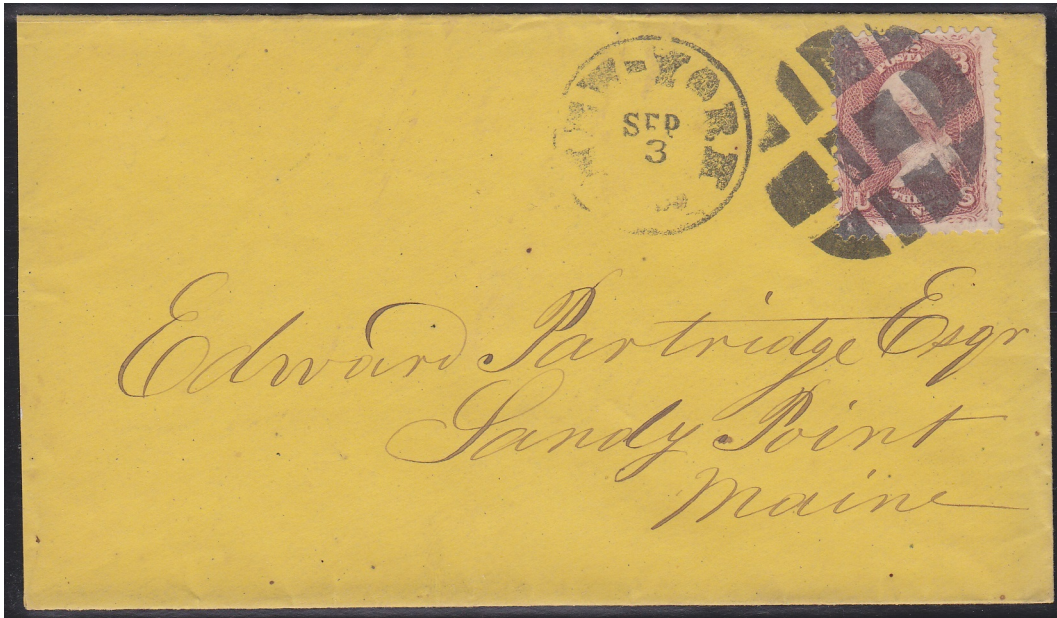 NEW-YORK
SEP
3
3
U S
Edward Partridge Esqr
Sandy Point
Maine